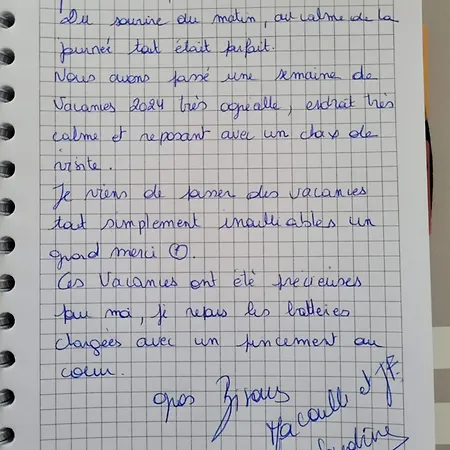 Du sourire du matin, au calme de la
journée tout était parfait.
Nous avons passé une semaine de
Vacances 2024 très agréable, endroit très
calme et reposant avec un choix de
visite.
Je viens de passer des vacances
tout simplement inoubliables un
grand merci
Ces Vacances ont été précieuses
pour moi, je repars les batteries
chargées avec un pincement au
coeur.
gros Bisous